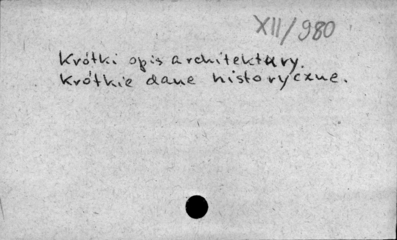 XII/980
Krótki opis architektury.
Krótkie dane historyczne.